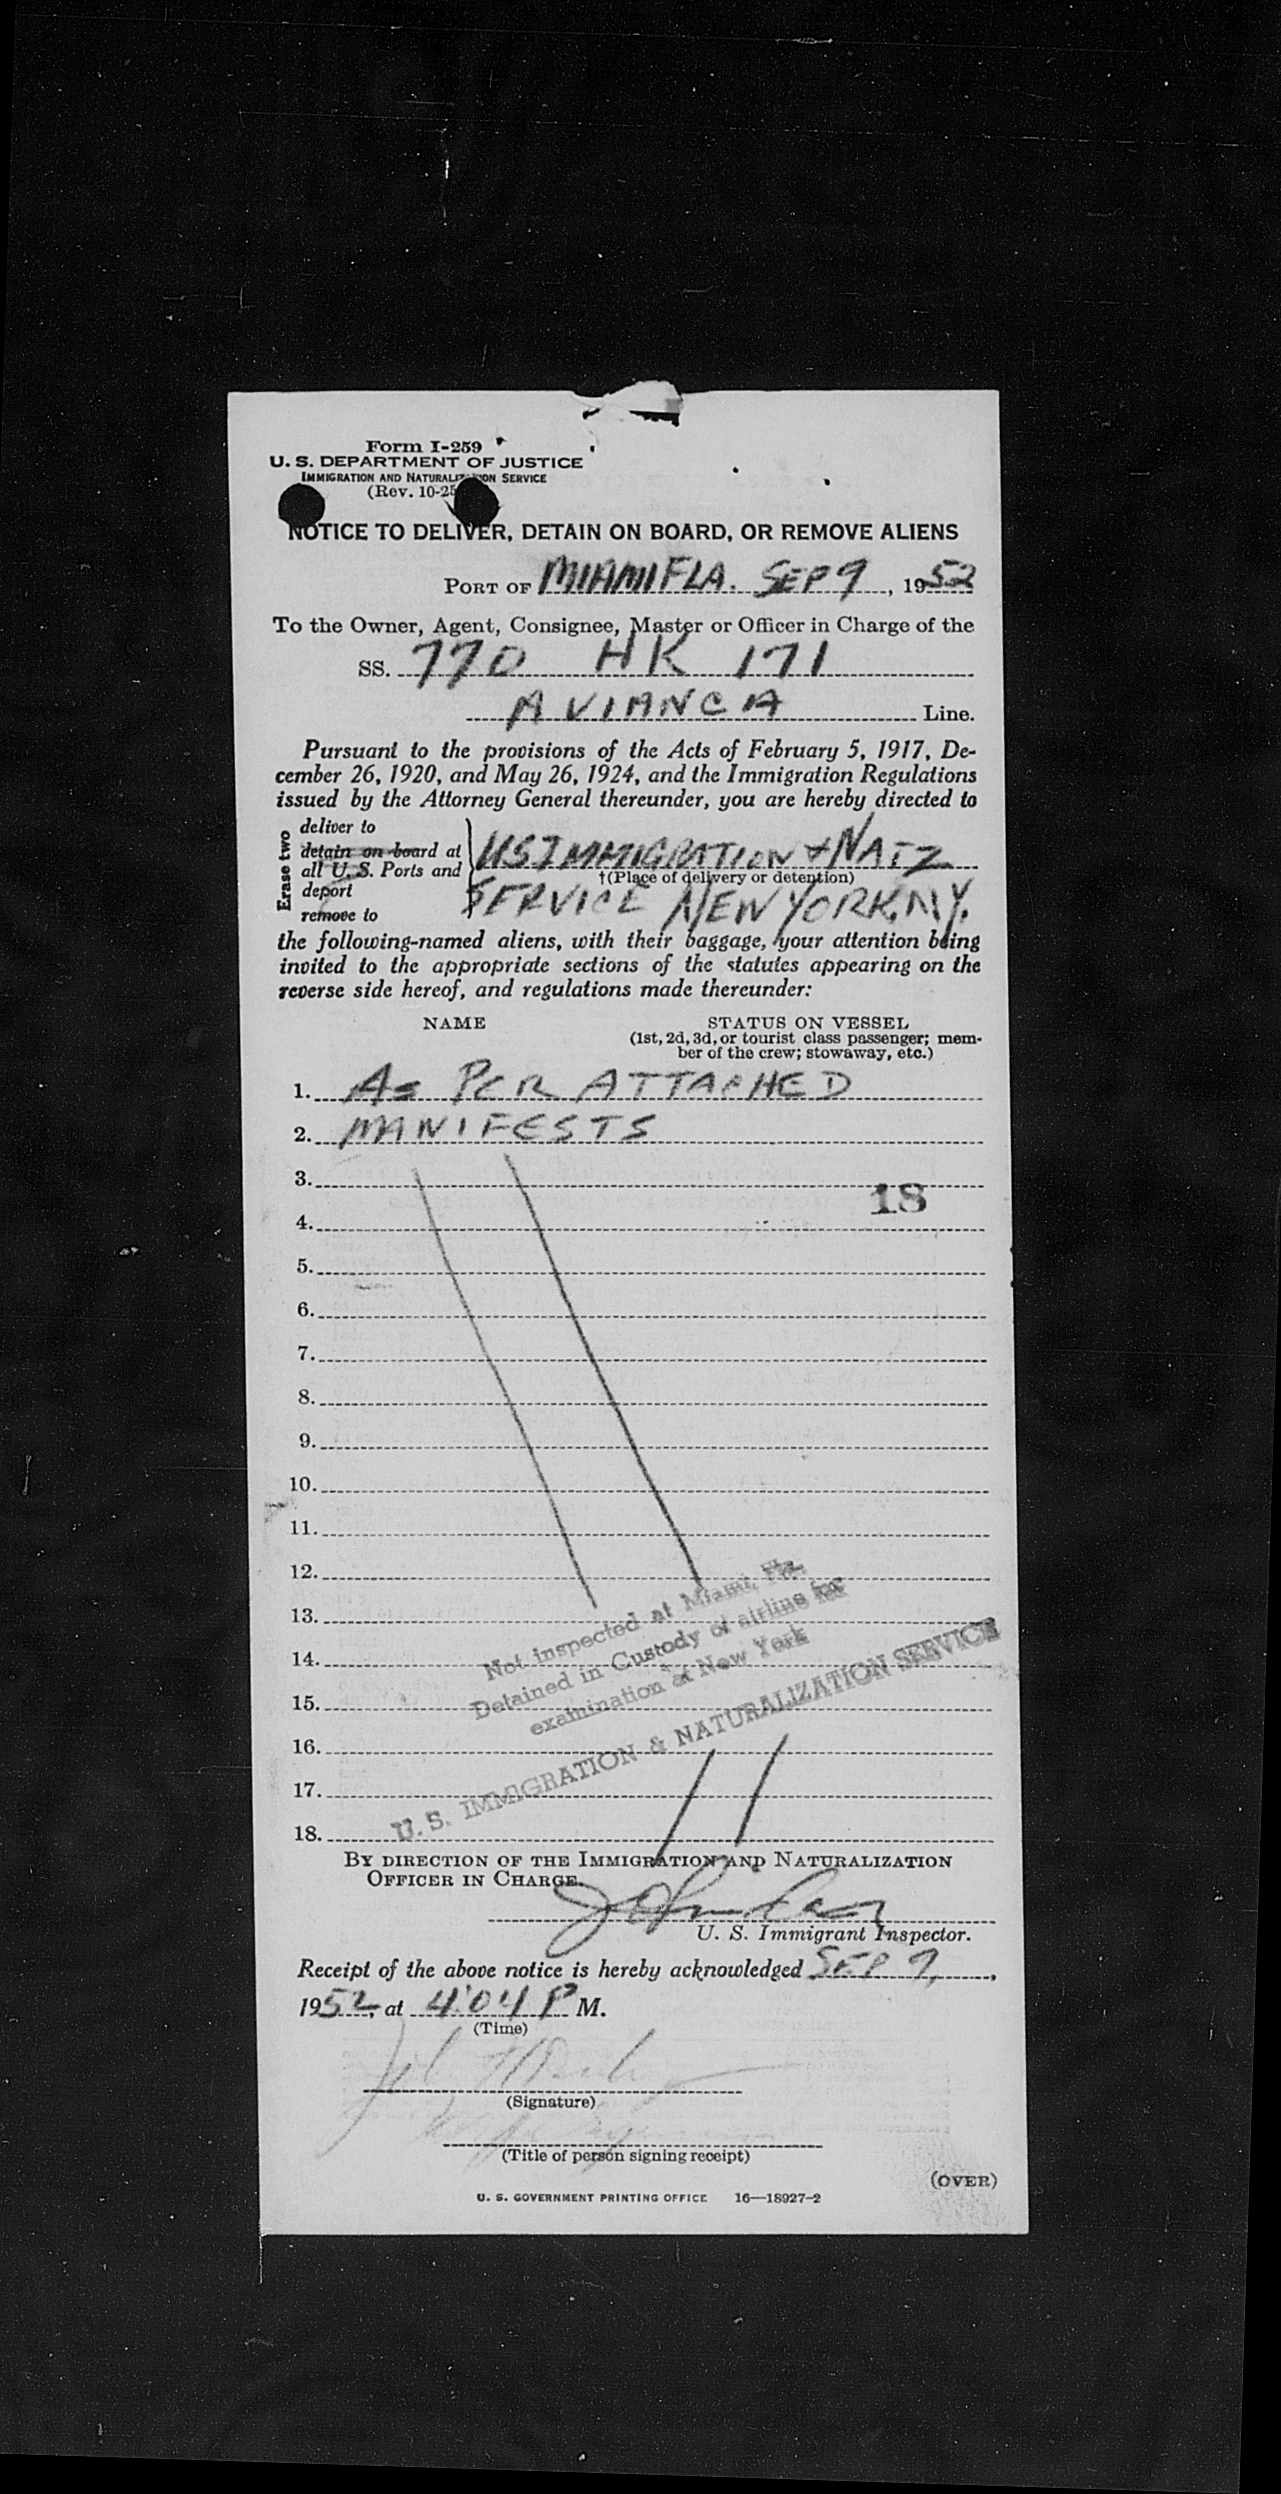 Form I-259
U. S. DEPARTMENT OF JUSTICE
IMMIGRATION AND NATURALIZATION SERVICE
(Rev. 10-25
NOTICE TO DELIVER, DETAIN ON BOARD, OR REMOVE ALIENS
PORT OF MIAMI FLA. SEP 9, 1952
To the Owner, Agent, Consignee, Master or Officer in Charge of the
SS. 770 HK 171
AVIANCA Line.
Pursuant to the provisions of the Acts of February 5, 1917, De-
cember 26, 1920, and May 26, 1924, and the Immigration Regulations
issued by the Attorney General thereunder, you are hereby directed to
Erase two
deliver to
detain on board at
all U. S. Ports and
deport
remove to
US IMMIGRATION & NATZ
†(Place of delivery or detention)
SERVICE NEW YORK, NY.
the following-named aliens, with their baggage, your attention being
invited to the appropriate sections of the statutes appearing on the
reverse side hereof, and regulations made thereunder:
NAME STATUS ON VESSEL
(1st, 2d, 3d, or tourist class passenger; mem-
ber of the crew; stowaway, etc.)
1. AS PER ATTACHED
2. MANIFESTS
3.
18
4.
5.
6.
7.
8.
9.
10.
11.
12.
13.
14.
15.
16.
17.
18.
Not inspected at Miami, Fla.
Detained in Custody of airline for
examination at New York
U. S. IMMIGRATION & NATURALIZATION SERVICE
BY DIRECTION OF THE IMMIGRATION AND NATURALIZATION
OFFICER IN CHARGE.
John
U. S. Immigrant Inspector.
Receipt of the above notice is hereby acknowledged SEP 9,
1952, at 4:04 P M.
(Time)
(Signature)
(Title of person signing receipt)
(OVER)
U. S. GOVERNMENT PRINTING OFFICE 16—18927-2